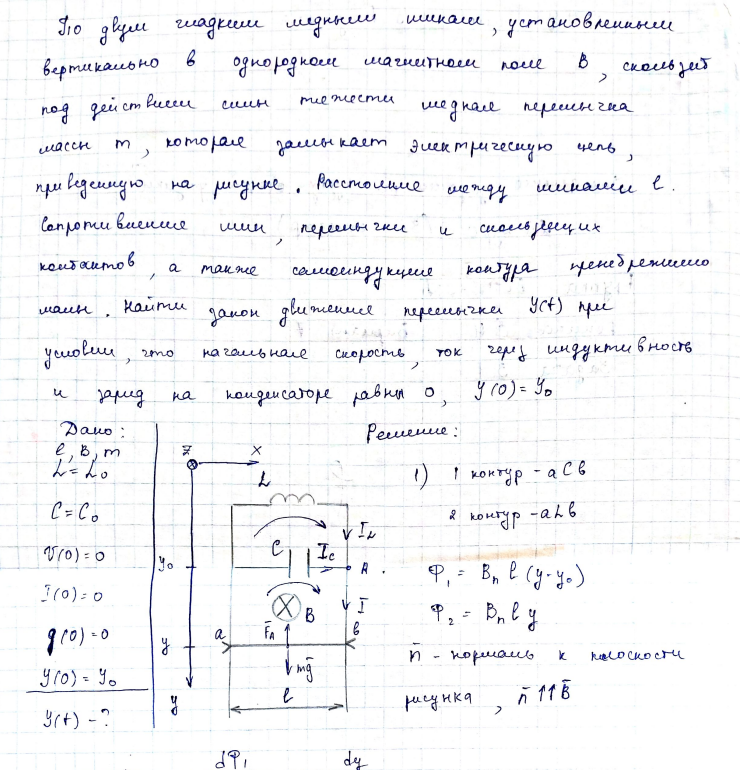 По двум гладким медным шинам, установленным
вертикально в однородном магнитном поле B, скользит
под действием силы тяжести медная перемычка
массы m, которая замыкает электрическую цепь,
приведенную на рисунке. Расстояние между шинами l.
Сопротивление шин, перемычки и скользящих
контактов, а также самоиндукция контура пренебрежимо
малы. Найти закон движения перемычки y(t) при
условии, что начальная скорость, ток через индуктивность
и заряд на конденсаторе равны 0, y(0) = y₀
Дано:
l, B, m
L = L₀
C = C₀
V(0) = 0
I(0) = 0
q(0) = 0
y(0) = y₀
y(t) - ?
z x
L
I_L
C I_C
y₀ A
I
B
F̄_A
a в
y
mḡ
l
y
Решение:
1) 1 контур - aCв
2 контур - aLв
Φ₁ = Bₙ l (y - y₀)
Φ₂ = Bₙ l y
n̄ - нормаль к плоскости
рисунка, n̄ ↑↑ B̄
dΦ₁ dy